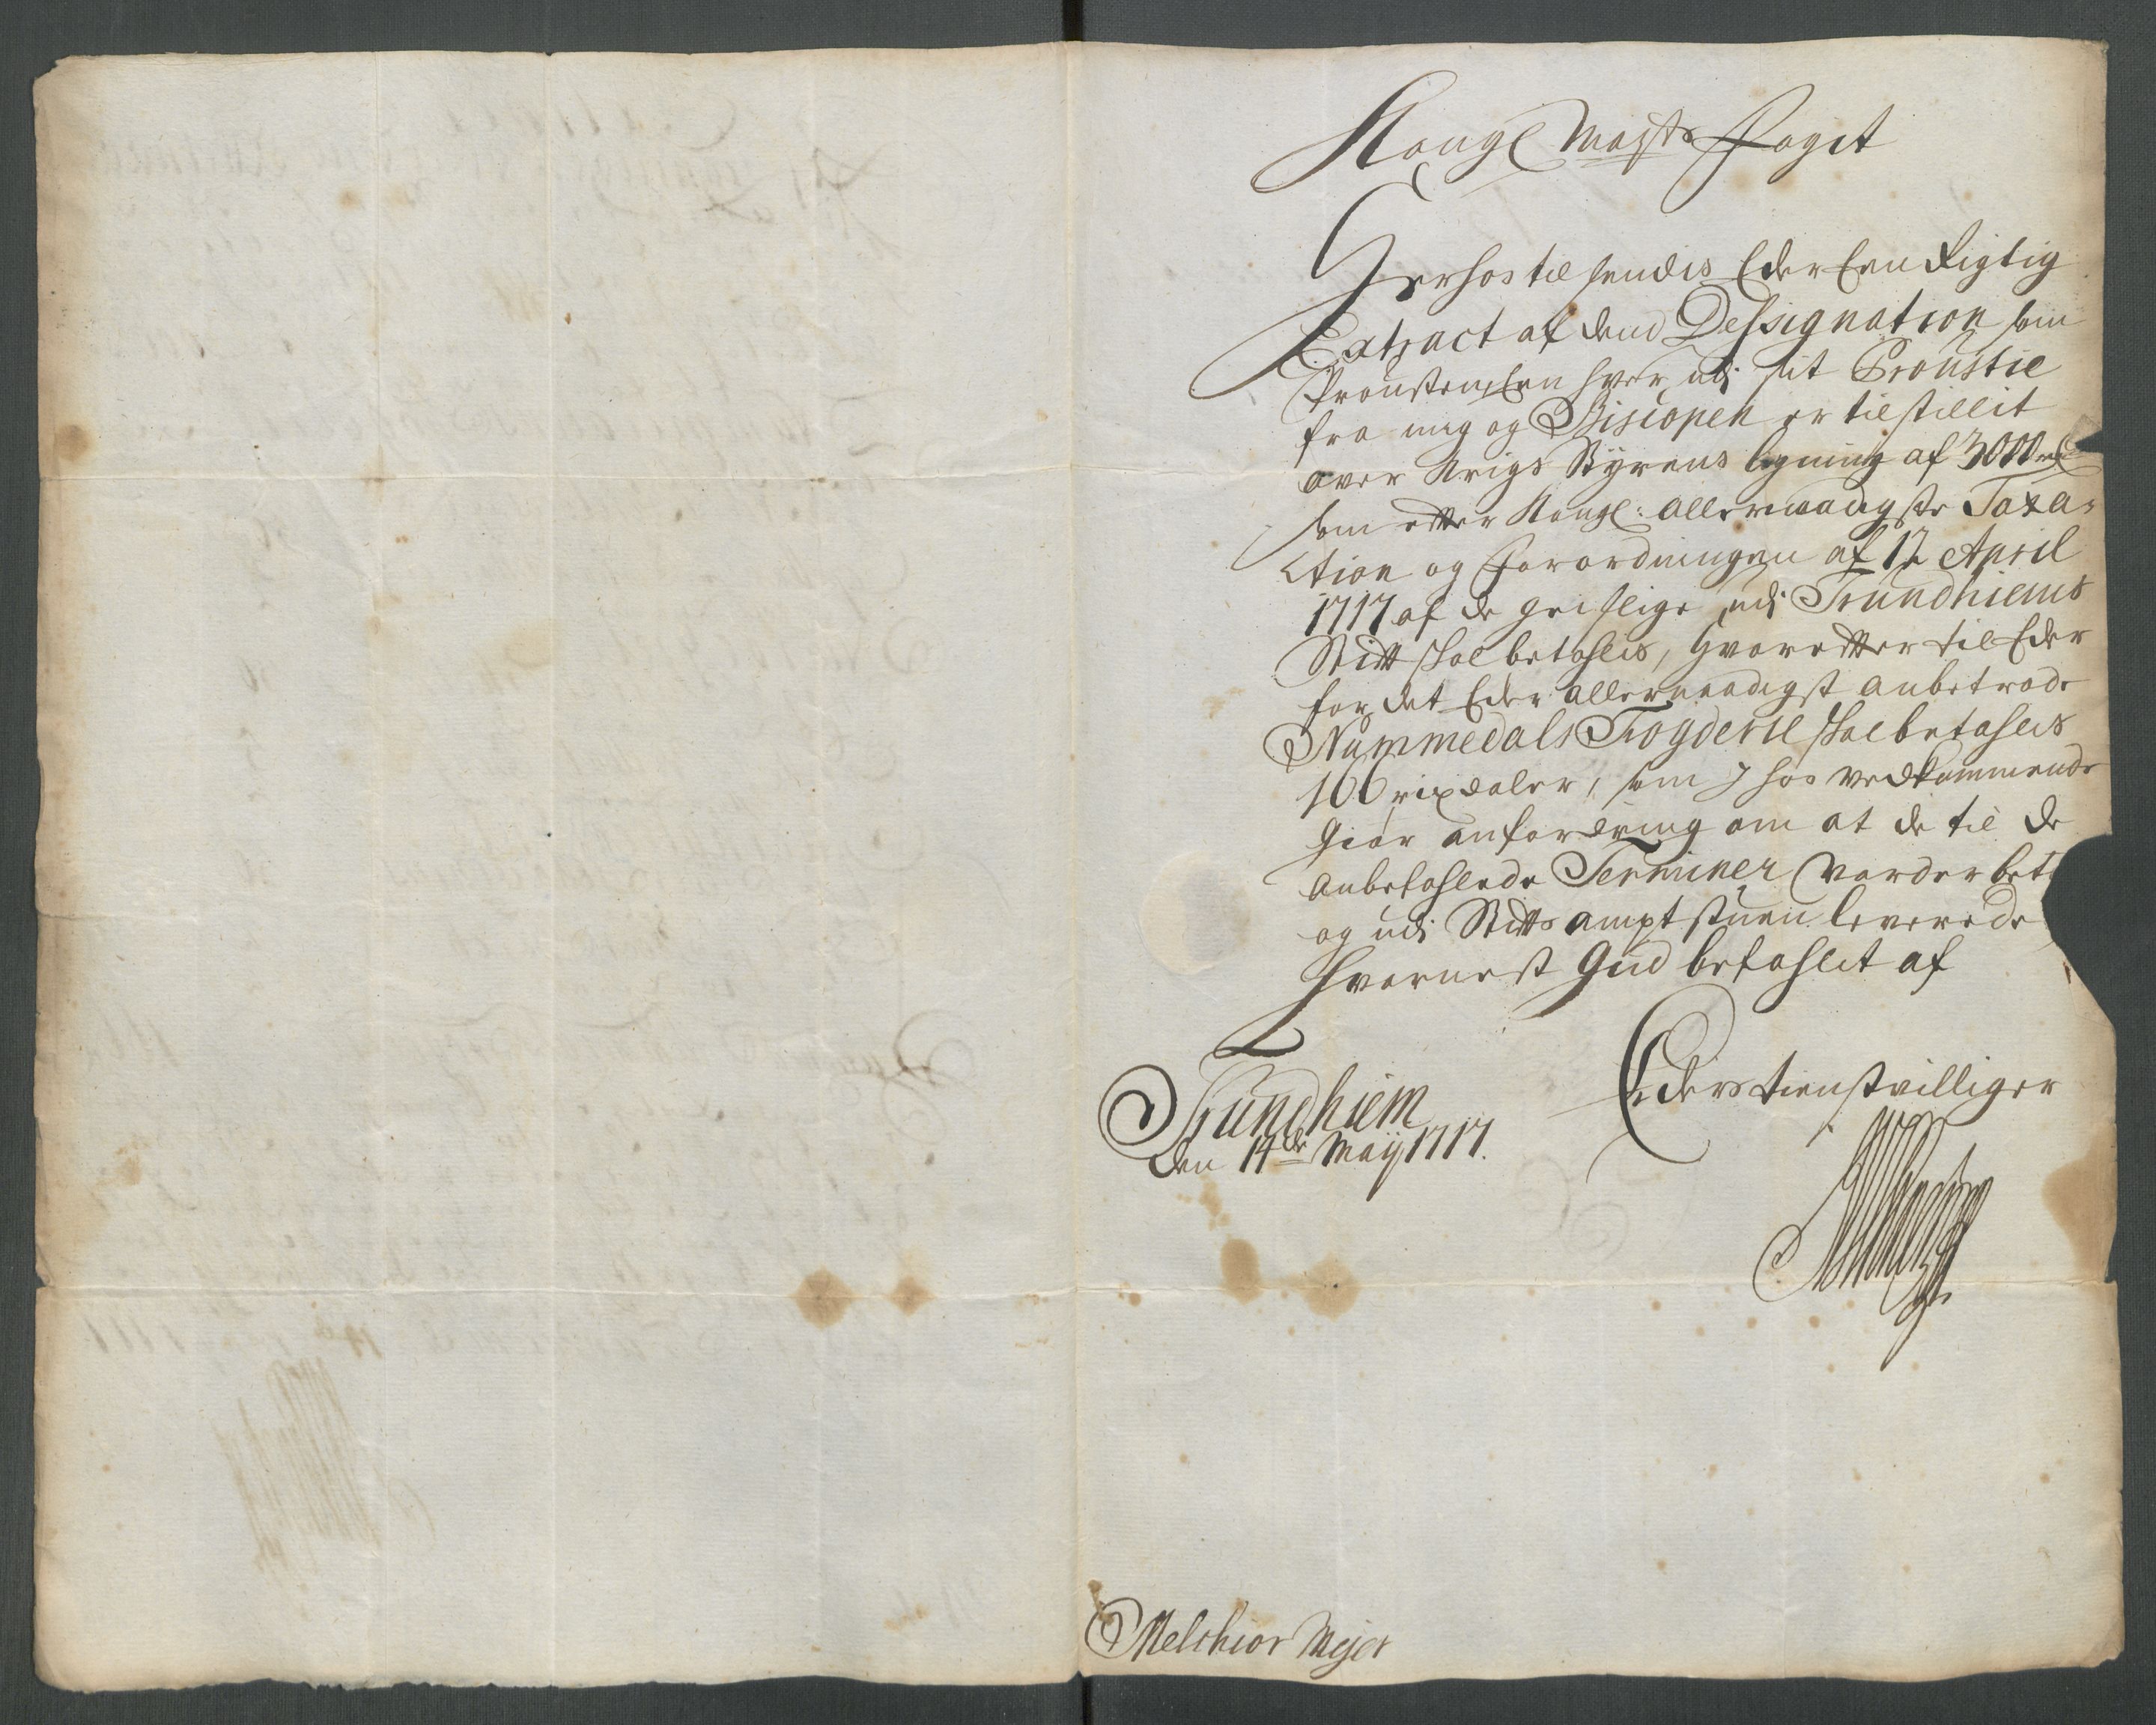 Kongl Mayts Foget
Herhos tilsendis Eder Een Rigtig
Extract af dend Dessignation som
Proustens Een hver udi sit Proustie
fra mig og Biscopen er tilstillit
over Krigs Styrens ligning af 3000 rd
som efter Kongl: allernaadigste Taxa-
tion og Forordningen af 12 April
1717 af de geistlige udi Trundhiems
Stift skal betahlis, hvorefter til Eder
for det Eder allernaadigst anbetrode
Nummedals Fogderie skal betahlis
166 rixdaler, som I hos vedkommende
Giør anfordring om at de til de
anbefahlede Terminer vorder bet
og udi Stiftsamptstuen leverede
hvornest Gud befahlet af
Eders tienstvilliger
Trundhiem
den 14de Maij 1717.
Melchior Mejer